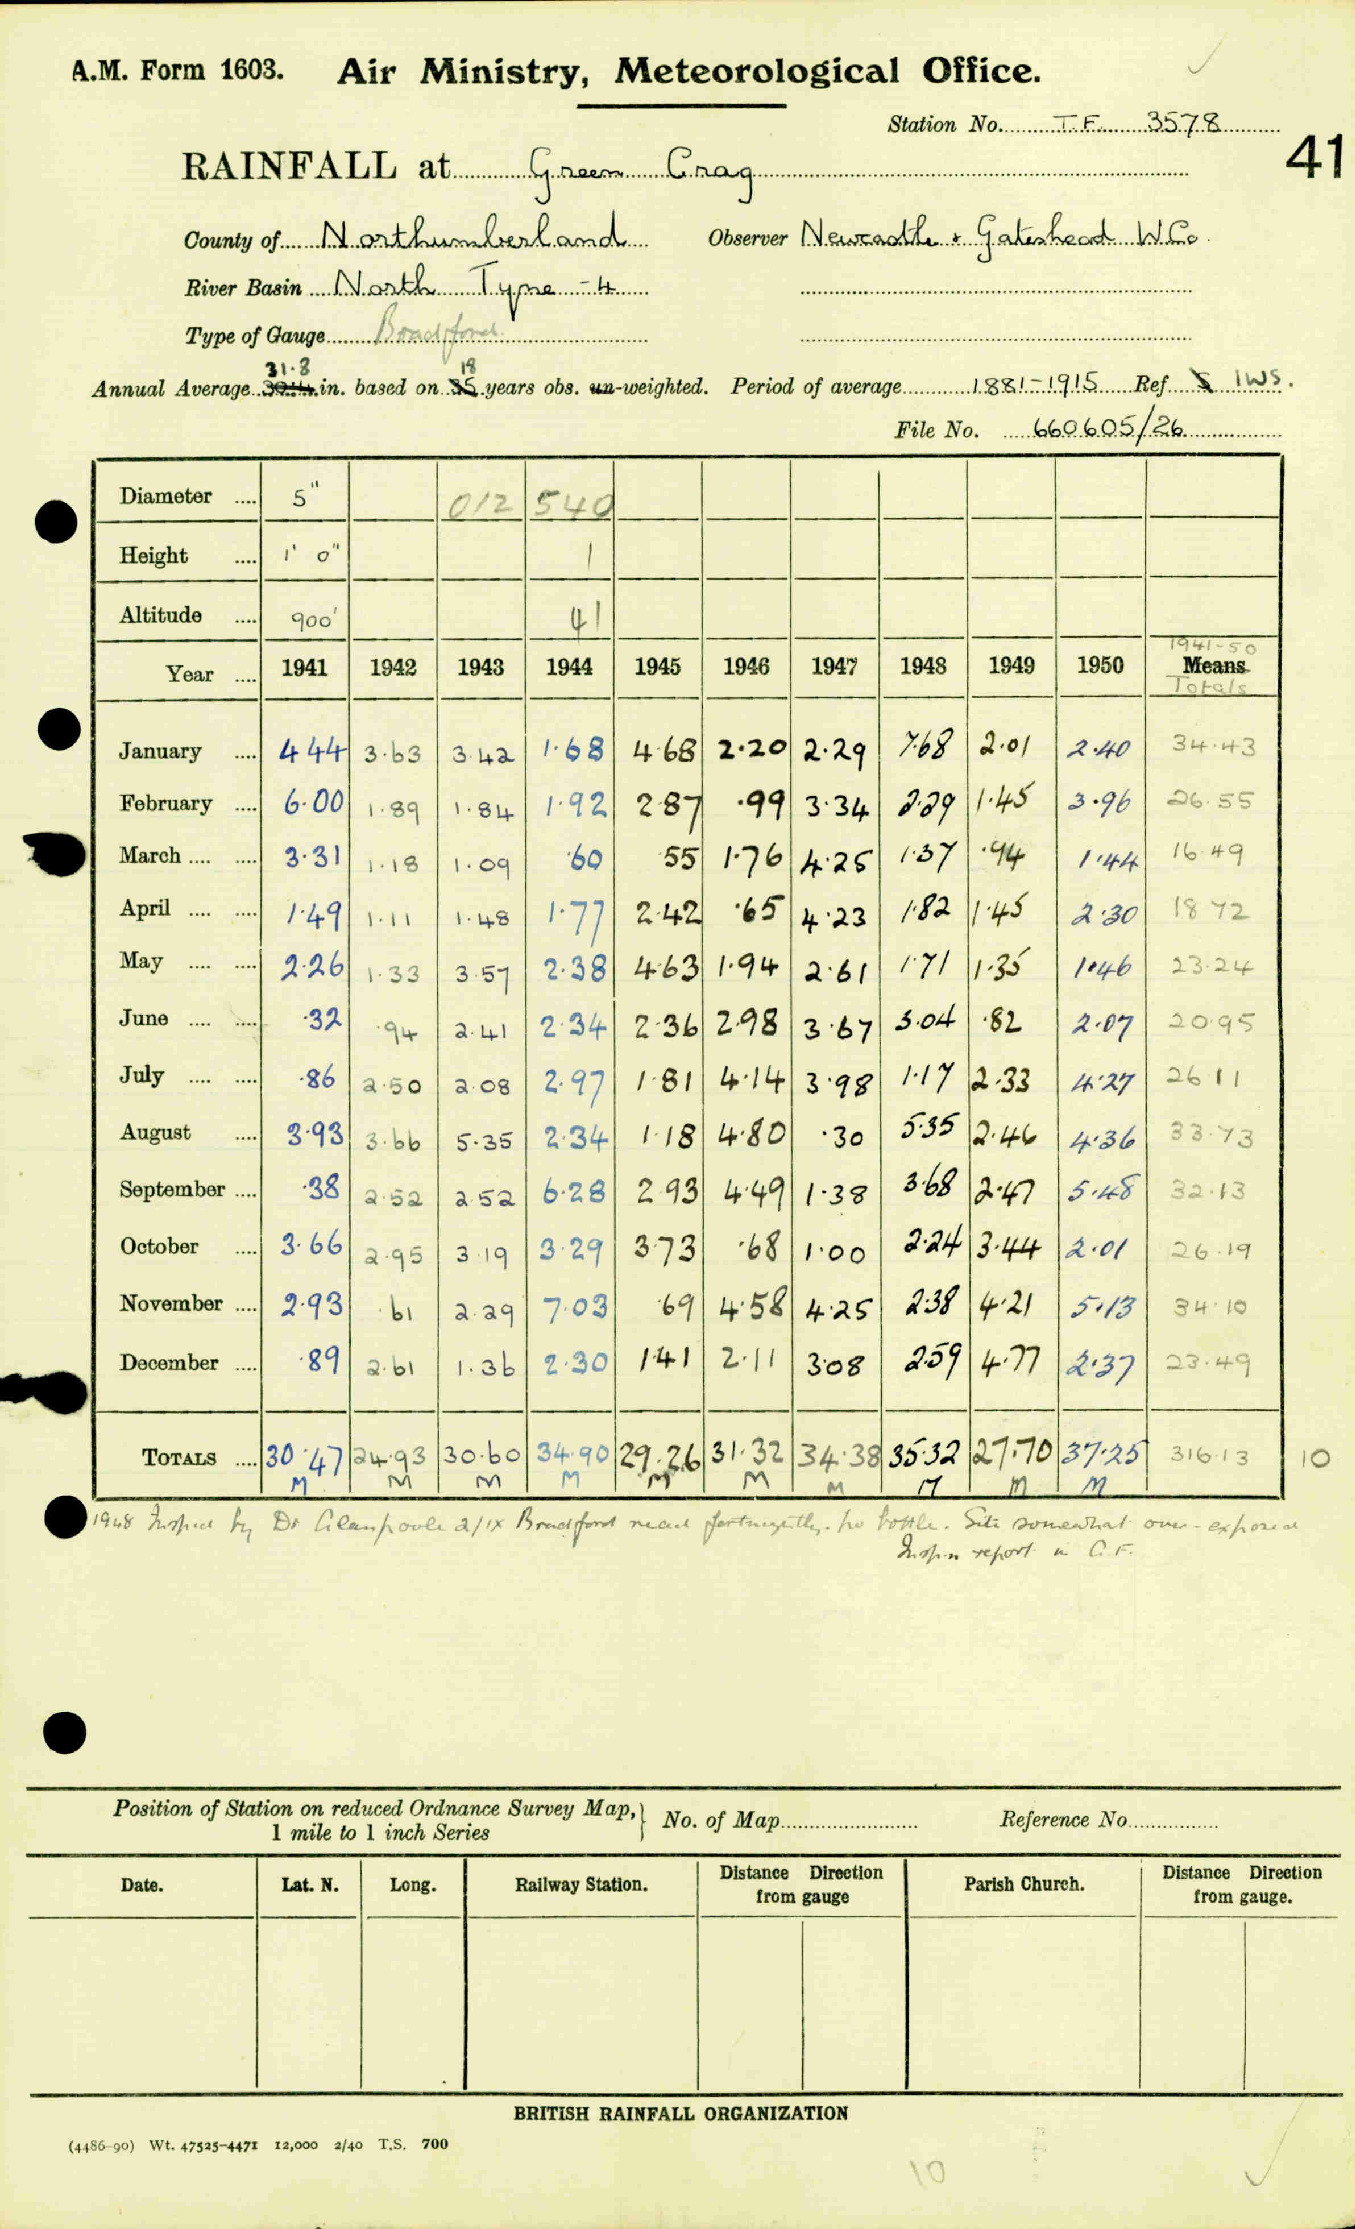 A.M. Form 1603. Air Ministry, Meteorological Office.
Station No. T.F. 3578
41
RAINFALL at Green Crag
County of Northumberland Observer Newcastle & Gateshead W Co.
River Basin North Tyne -4
Type of Gauge Bradford
31.8 18
Annual Average in. based on 35 years obs. un-weighted. Period of average 1881-1915 Ref. S IWS.
File No. 660605/26
Diameter .... 5" 012 540
Height .... 1' 0" 1
Altitude .... 900' 41
1941-50
Year .... 1941 1942 1943 1944 1945 1946 1947 1948 1949 1950 Means
Totals
January .... 4 44 3.63 3.42 1.68 4.68 2.20 2.29 7.68 2.01 2.40 34.43
February .... 6.00 1.89 1.84 1.92 2.87 .99 3.34 2.29 1.45 3.96 26.55
March .... .... 3.31 1.18 1.09 .60 .55 1.76 4.25 1.37 .94 1.44 16.49
April .... .... 1.49 1.11 1.48 1.77 2.42 .65 4.23 1.82 1.45 2.30 18.72
May .... .... 2.26 1.33 3.57 2.38 4.63 1.94 2.61 1.71 1.35 1.46 23.24
June .... .... .32 .94 2.41 2.34 2.36 2.98 3.67 3.04 .82 2.07 20.95
July .... .... .86 2.50 2.08 2.97 1.81 4.14 3.98 1.17 2.33 4.27 26.11
August .... 3.93 3.66 5.35 2.34 1.18 4.80 .30 5.35 2.46 4.36 33.73
September .... .38 2.52 2.52 6.28 2.93 4.49 1.38 3.68 2.47 5.48 32.13
October .... 3.66 2.95 3.19 3.29 3.73 .68 1.00 2.24 3.44 2.01 26.19
November .... 2.93 .61 2.29 7.03 .69 4.58 4.25 2.38 4.21 5.13 34.10
December .... .89 2.61 1.36 2.30 1.41 2.11 3.08 2.59 4.77 2.37 23.49
TOTALS .... 30.47 24.93 30.60 34.90 29.26 31.32 34.38 35.32 27.70 37.25 316.13 10
M M M M M M M M M M
1948 Inspied by Dr Glasspoole 2/IX Bradford read fortnightly. No bottle. Site somewhat over-exposed
Inspn report in C.F.
Position of Station on reduced Ordnance Survey Map, } No. of Map Reference No.
1 mile to 1 inch Series
Date. Lat. N. Long. Railway Station. Distance Direction from gauge Parish Church. Distance Direction from gauge.
BRITISH RAINFALL ORGANIZATION
(4486-90) Wt. 47525-4471 12,000 2/40 T.S. 700
10